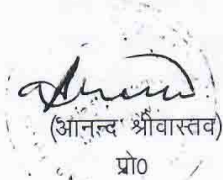 (आनन्द श्रीवास्तव)
प्रो0